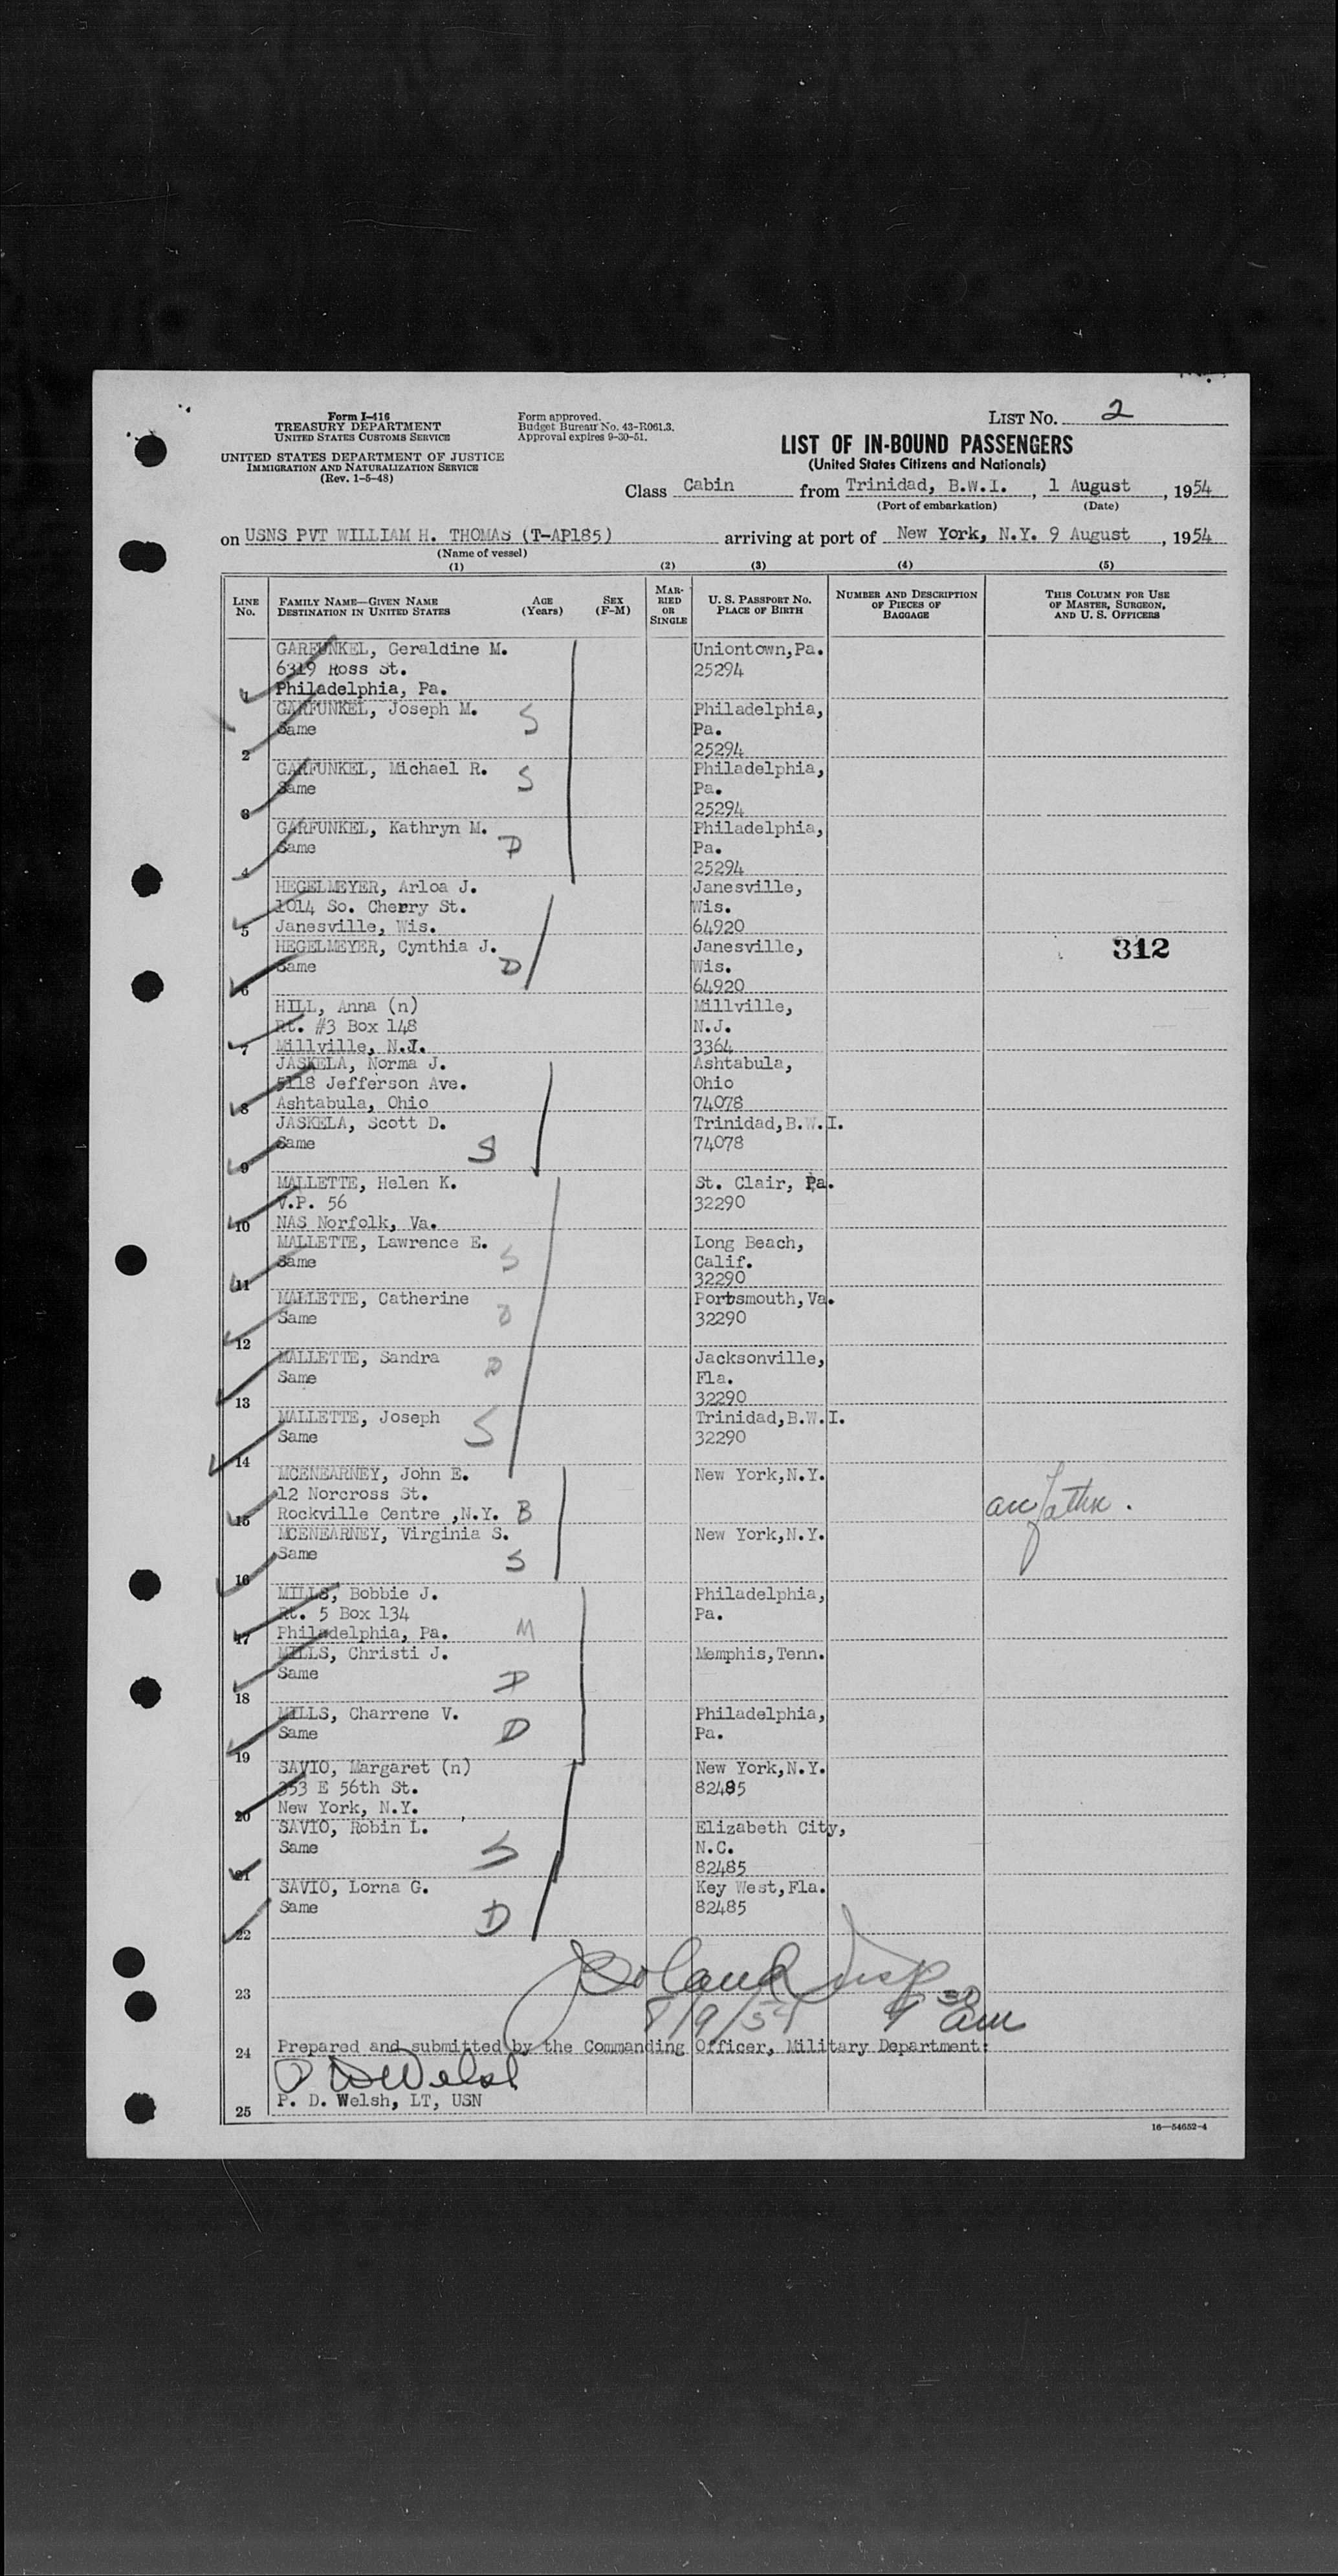 Form I-416
TREASURY DEPARTMENT
UNITED STATES CUSTOMS SERVICE
UNITED STATES DEPARTMENT OF JUSTICE
IMMIGRATION AND NATURALIZATION SERVICE
(Rev. 1-5-48)
Form approved.
Budget Bureau No. 43-R061.3.
Approval expires 9-30-51.
LIST NO. 2
LIST OF IN-BOUND PASSENGERS
(United States Citizens and Nationals)
Class Cabin from Trinidad, B.W.I., 1 August, 1954
(Port of embarkation) (Date)
on USNS PVT WILLIAM H. THOMAS (T-AP185) arriving at port of New York, N.Y. 9 August, 1954
(Name of vessel)
(1) (2) (3) (4) (5)
LINE NO. FAMILY NAME—GIVEN NAME DESTINATION IN UNITED STATES AGE (Years) SEX (F-M) MARRIED OR SINGLE U. S. PASSPORT NO. PLACE OF BIRTH NUMBER AND DESCRIPTION OF PIECES OF BAGGAGE THIS COLUMN FOR USE OF MASTER, SURGEON, AND U. S. OFFICERS
GARFUNKEL, Geraldine M. Uniontown,Pa.
6319 Ross St. 25294
1 Philadelphia, Pa.
GARFUNKEL, Joseph M. S Philadelphia,
Same Pa.
2 25294
GARFUNKEL, Michael R. S Philadelphia,
Same Pa.
3 25294
GARFUNKEL, Kathryn M. D Philadelphia,
Same Pa.
4 25294
HEGELMEYER, Arloa J. Janesville,
1014 So. Cherry St. Wis.
5 Janesville, Wis. 64920
HEGELMEYER, Cynthia J. D Janesville, 312
Same Wis.
6 64920
HILL, Anna (n) Millville,
Rt. #3 Box 148 N.J.
7 Millville, N.J. 3364
JASKELA, Norma J. Ashtabula,
5118 Jefferson Ave. Ohio
8 Ashtabula, Ohio 74078
JASKELA, Scott D. Trinidad,B.W.I.
Same S 74078
9
MALLETTE, Helen K. St. Clair, Pa.
V.P. 56 32290
10 NAS Norfolk, Va.
MALLETTE, Lawrence E. S Long Beach,
Same Calif.
11 32290
MALLETTE, Catherine D Portsmouth,Va.
Same 32290
12
MALLETTE, Sandra D Jacksonville,
Same Fla.
13 32290
MALLETTE, Joseph S Trinidad,B.W.I.
Same 32290
14
MCENEARNEY, John E. New York,N.Y.
12 Norcross St.
15 Rockville Centre ,N.Y. B
MCENEARNEY, Virginia S. New York,N.Y.
Same S
16
MILLS, Bobbie J. Philadelphia,
Rt. 5 Box 134 Pa.
17 Philadelphia, Pa. M
MILLS, Christi J. Memphis,Tenn.
Same D
18
MILLS, Charrene V. Philadelphia,
Same D Pa.
19
SAVIO, Margaret (n) New York,N.Y.
353 E 56th St. 82485
20 New York, N.Y.
SAVIO, Robin L. Elizabeth City,
Same S N.C.
21 82485
SAVIO, Lorna G. Key West,Fla.
Same D 82485
22
23
8/9/54 9 30 am
24 Prepared and submitted by the Commanding Officer, Military Department:
P D Welsh
P. D. Welsh, LT, USN
25
16—54652-4